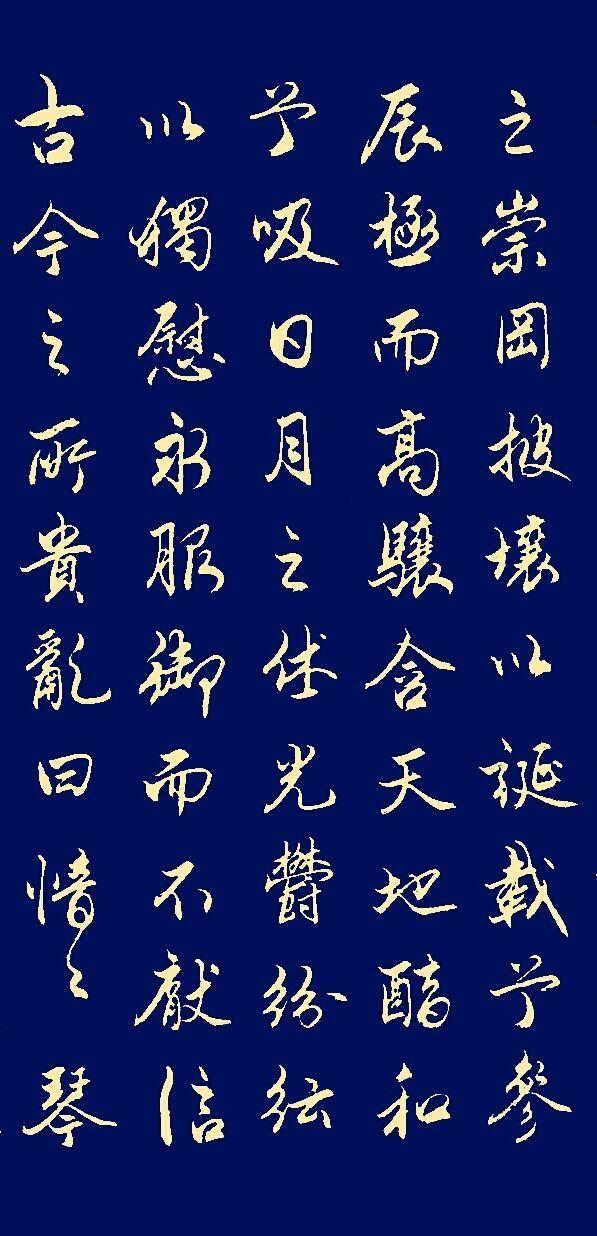 之崇岡披壤以誕載兮參
辰極而高驤含天地醇和
兮吸日月之休光鬱紛紜
以獨慰永服御而不厭信
古今之所貴亂曰愔〻琴